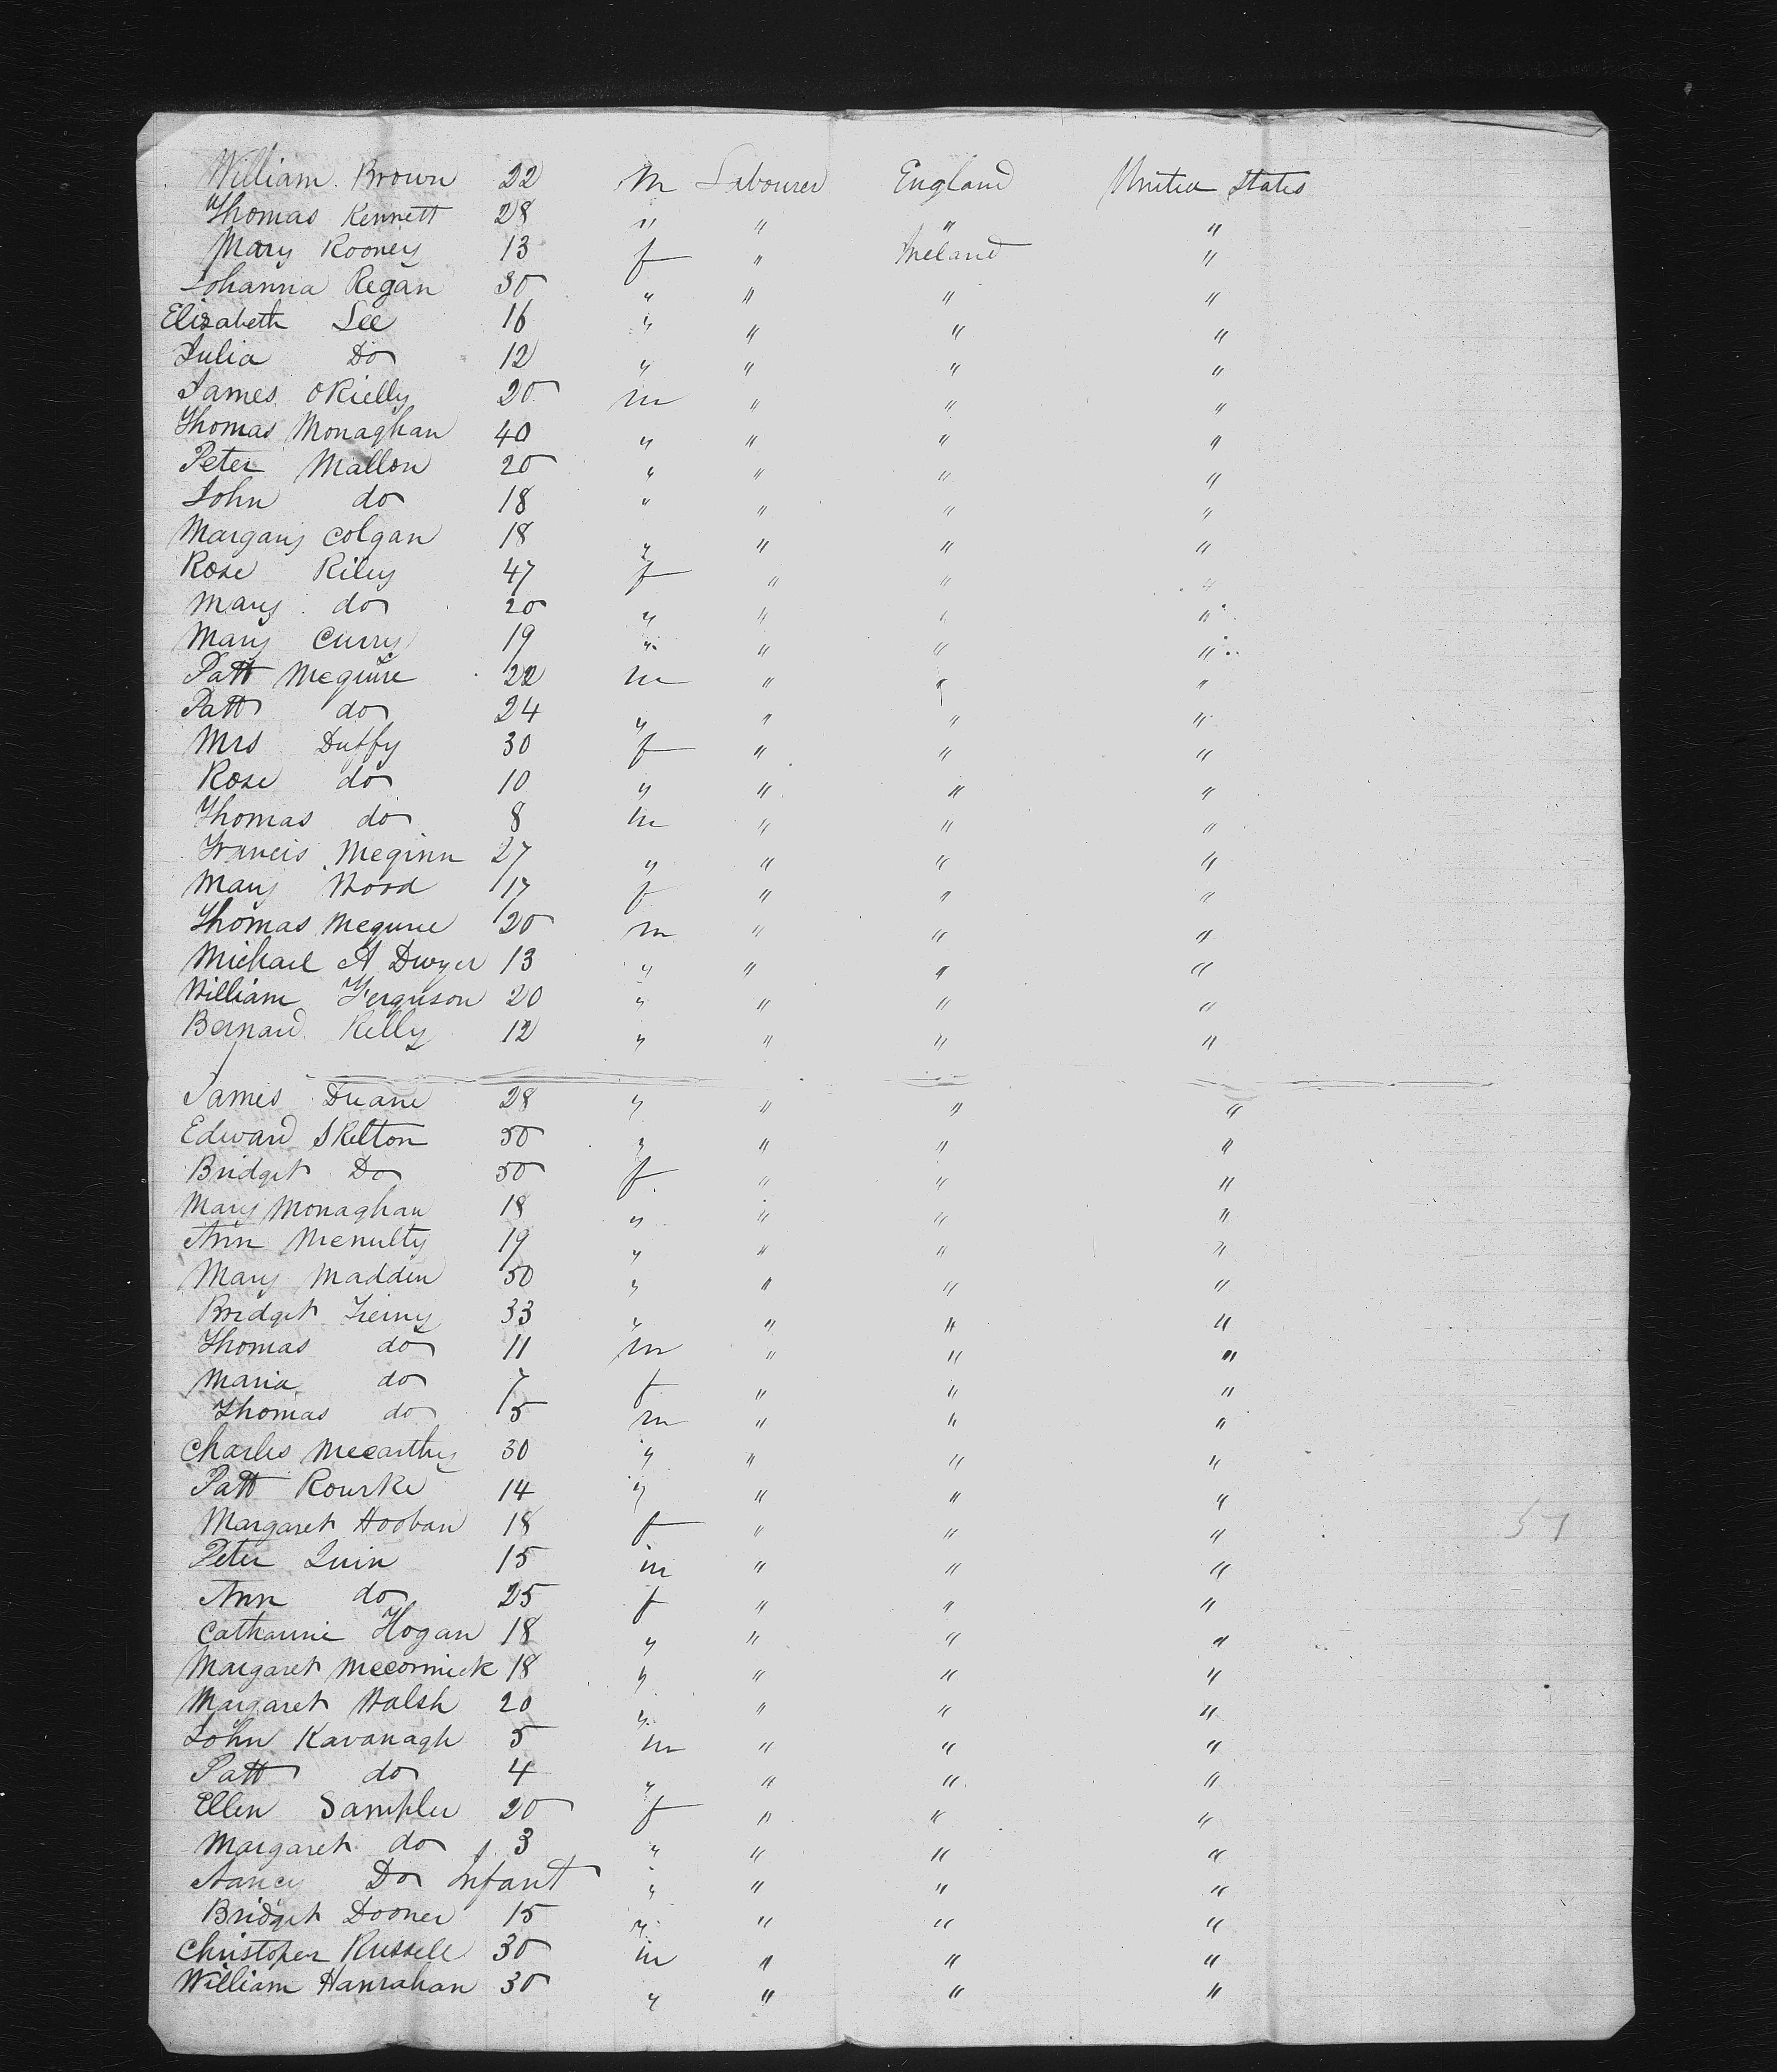 William Brown 22 M Labourer England United States
Thomas Kennett 28 " " " "
Mary Rooney 13 f " Ireland "
Johanna Regan 30 " " " "
Elizabeth Lee 16 " " " "
Julia Do 12 " " " "
James ORielly 20 m " " "
Thomas Monaghan 40 " " " "
Peter Mallon 20 " " " "
John do 18 " " " "
Margary Colgan 18 " " " "
Rose Riley 47 f " " "
Mary do 20 " " " "
Mary Curry 19 " " " "
Patt Mcguire 22 m " " "
Patt do 24 " " " "
Mrs Duffy 30 f " " "
Rose do 10 " " " "
Thomas do 8 m " " "
Francis Mcginn 27 " " " "
Mary Wood 17 f " " "
Thomas Mcguire 20 m " " "
Michael A Dwyer 13 " " " "
William Ferguson 20 " " " "
Bernard Kelly 12 " " " "
James Duane 28 " " " "
Edward Skelton 50 " " " "
Bridget Do 50 f " " "
Mary Monaghan 18 " " " "
Ann Mcnulty 19 " " " "
Mary Madden 50 " " " "
Bridget 33 " " " "
Thomas do 11 m " " "
Maria do 7 f " " "
Thomas do 5 m " " "
Charles Mccarthy 30 " " " "
Patt Rourke 14 " " " "
Margaret Hooban 18 f " " "
Peter Quin 15 m " " "
Ann do 25 f " " "
Catharine Hogan 18 " " " "
Margaret Mccormick 18 " " " "
Margaret Walsh 20 " " " "
John Kavanagh 5 m " " "
Patt do 4 " " " "
Ellen Sampler 20 f " " "
Margaret do 3 " " " "
Nancy Do Infant " " " "
Bridget Dooner 15 " " " "
Christopher Russell 30 m " " "
William Hanrahan 30 " " " "